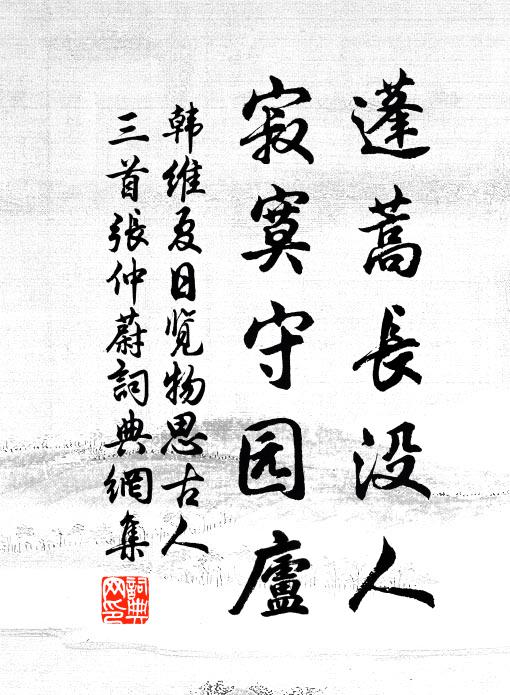 蓬蒿長没人
寂寞守园廬
韩维夏日览物思古人
三首張仲蔚詞典網集
詞典